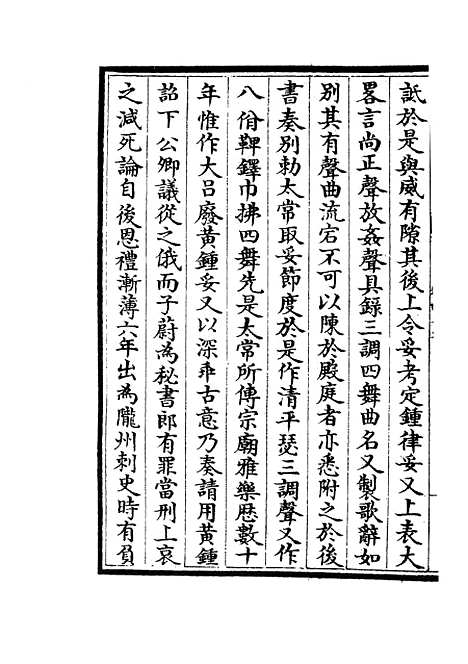 詆於是與威有隙其後上令妥考定鍾律妥又上表大
畧言尚正聲放姦聲具録三調四舞曲名又製歌辭如
别其有聲曲流宕不可以陳於殿庭者亦悉附之於後
書奏别勅太常取妥節度於是作清平瑟三調聲又作
八佾鞞鐸巾拂四舞先是太常所傳宗廟雅樂歴數十
年惟作大吕廢黄鍾妥又以深乖古意乃奏請用黄鍾
詔下公卿議從之俄而子蔚為秘書郎有罪當刑上哀
之減死論自後恩禮漸薄六年出為隴州刺史時有負